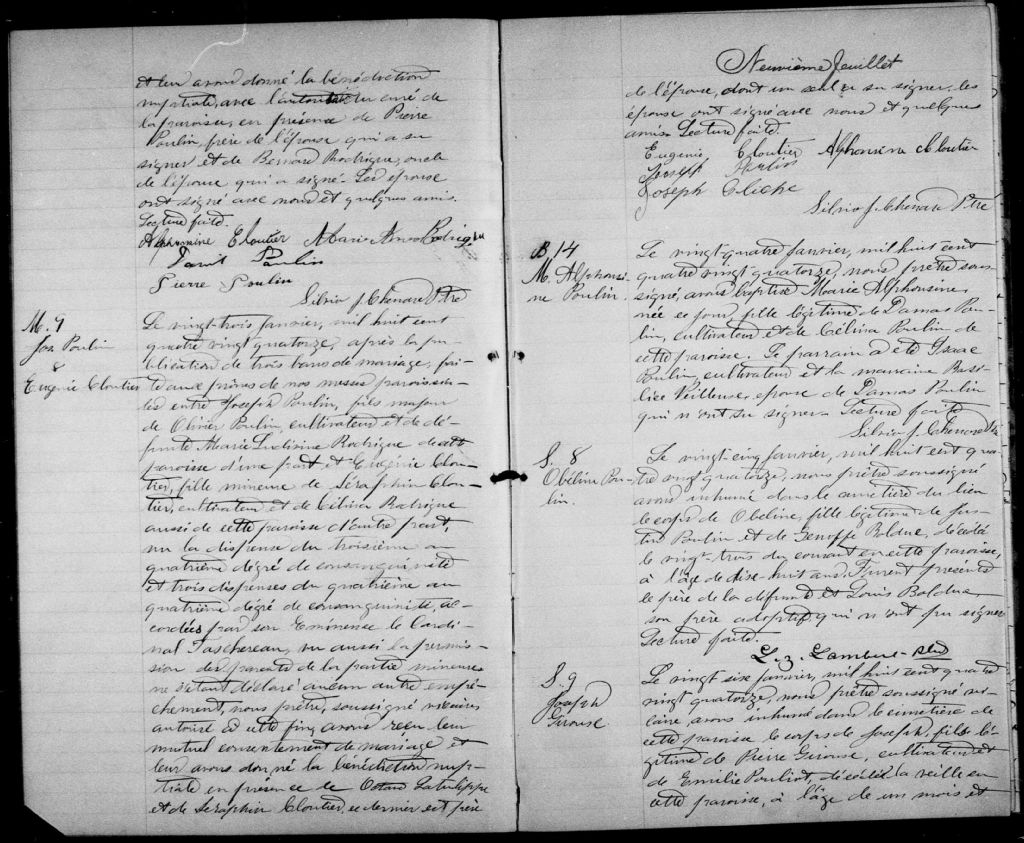 et leur avons donné la bénédiction
nuptiale, avec l'autorité du curé de
la paroisse, en présence de Pierre
Poulin, frère de l'épouse qui a su
signer et de Bernard Rodrigue, oncle
de l'épouse qui a signé. Les époux
ont signé avec nous et quelques amis.
Lecture faite.
Alphonsine Cloutier Marie Rodrigue
Poulin
Pierre Poulin
Silvio J. Chenard Ptre
M. 7
Jos. Poulin
&
Eugénie Cloutier
Le vingt-trois Janvier, mil huit cent
quatre vingt quatorze, après la pu-
blication de trois bans de mariage, fai-
te aux prônes de nos messes paroissia-
les entre Joseph Poulin, fils majeur
de Olivier Poulin, cultivateur et de dé-
funte Marie Rodrigue de cette
paroisse d'une part et Eugénie Clou-
tier, fille mineure de Séraphin Clou-
tier, cultivateur et de Célina Rodrigue
aussi de cette paroisse d'autre part,
vu la dispense du troisième au
quatrième dégré de consanguinité
et trois dispenses du quatrième au
quatrième dégré de consanguinité, ac-
cordées par son Eminense le Cardi-
nal Taschereau, vu aussi la permis-
sion des parents de la partie mineure
ne s'étant déclaré aucun autre empê-
chement, nous prêtre, soussigné vicaire
autorisé à cette fin, avons reçu leur
mutuel consentement de mariage et
leur avons donné la bénédiction nup-
tiale en présence de Octave Latulippe
et de Séraphin Cloutier, ce dernier est père
Neuvième feuillet
de l'épouse, dont un seul a su signer, les
épouse ont signé avec nous et quelques
amis. Lecture faite.
Eugenie Cloutier Alphonsina Cloutier
Joseph Poulin
Joseph Cliche
Silvio J. Chenard Ptre
B. 14
M. Alphonsi-
ne Poulin.
Le vingt quatre Janvier, mil huit cent
quatre vingt quatorze, nous prêtre sous-
signé, avons baptisé Marie Alphonsine,
née ce jour, fille légitime de Damas Pou-
lin, cultivateur et de Célina Poulin de
cette paroisse. Le parrain a été Isaac
Poulin, cultivateur et la marraine Basi-
lice Veilleux, épouse de Damas Poulin
qui n'ont su signer. Lecture faite
Silvio J. Chenard Ptre
S. 8
Obéline Pou-
lin.
Le vingt cinq Janvier, mil huit cent qua-
tre vingt quatorze, nous prêtre soussigné
avons inhumé dans le cimetière du lieu
le corps de Obéline, fille légitime de Jus-
tin Poulin et de Génoffe Bolduc, décédée
le vingt-trois du courant en cette paroisse,
à l'âge de dix-huit ans. Furent présents
le père de la défunte et Louis Bolduc,
son frère adoptif, qui n'ont pu signer
Lecture faite.
L. Z. Lambert
S. 9
Joseph
Girouse
Le vingt six Janvier, mil huit cent quatre
vingt quatorze, nous prêtre soussigné vi-
caire, avons inhumé dans le cimetière de
cette paroisse le corps de Joseph, fils lé-
gitime de Pierre Girouse, cultivateur et
de Emilie Pouliot, décédé la veille en
cette paroisse, à l'âge de un mois et